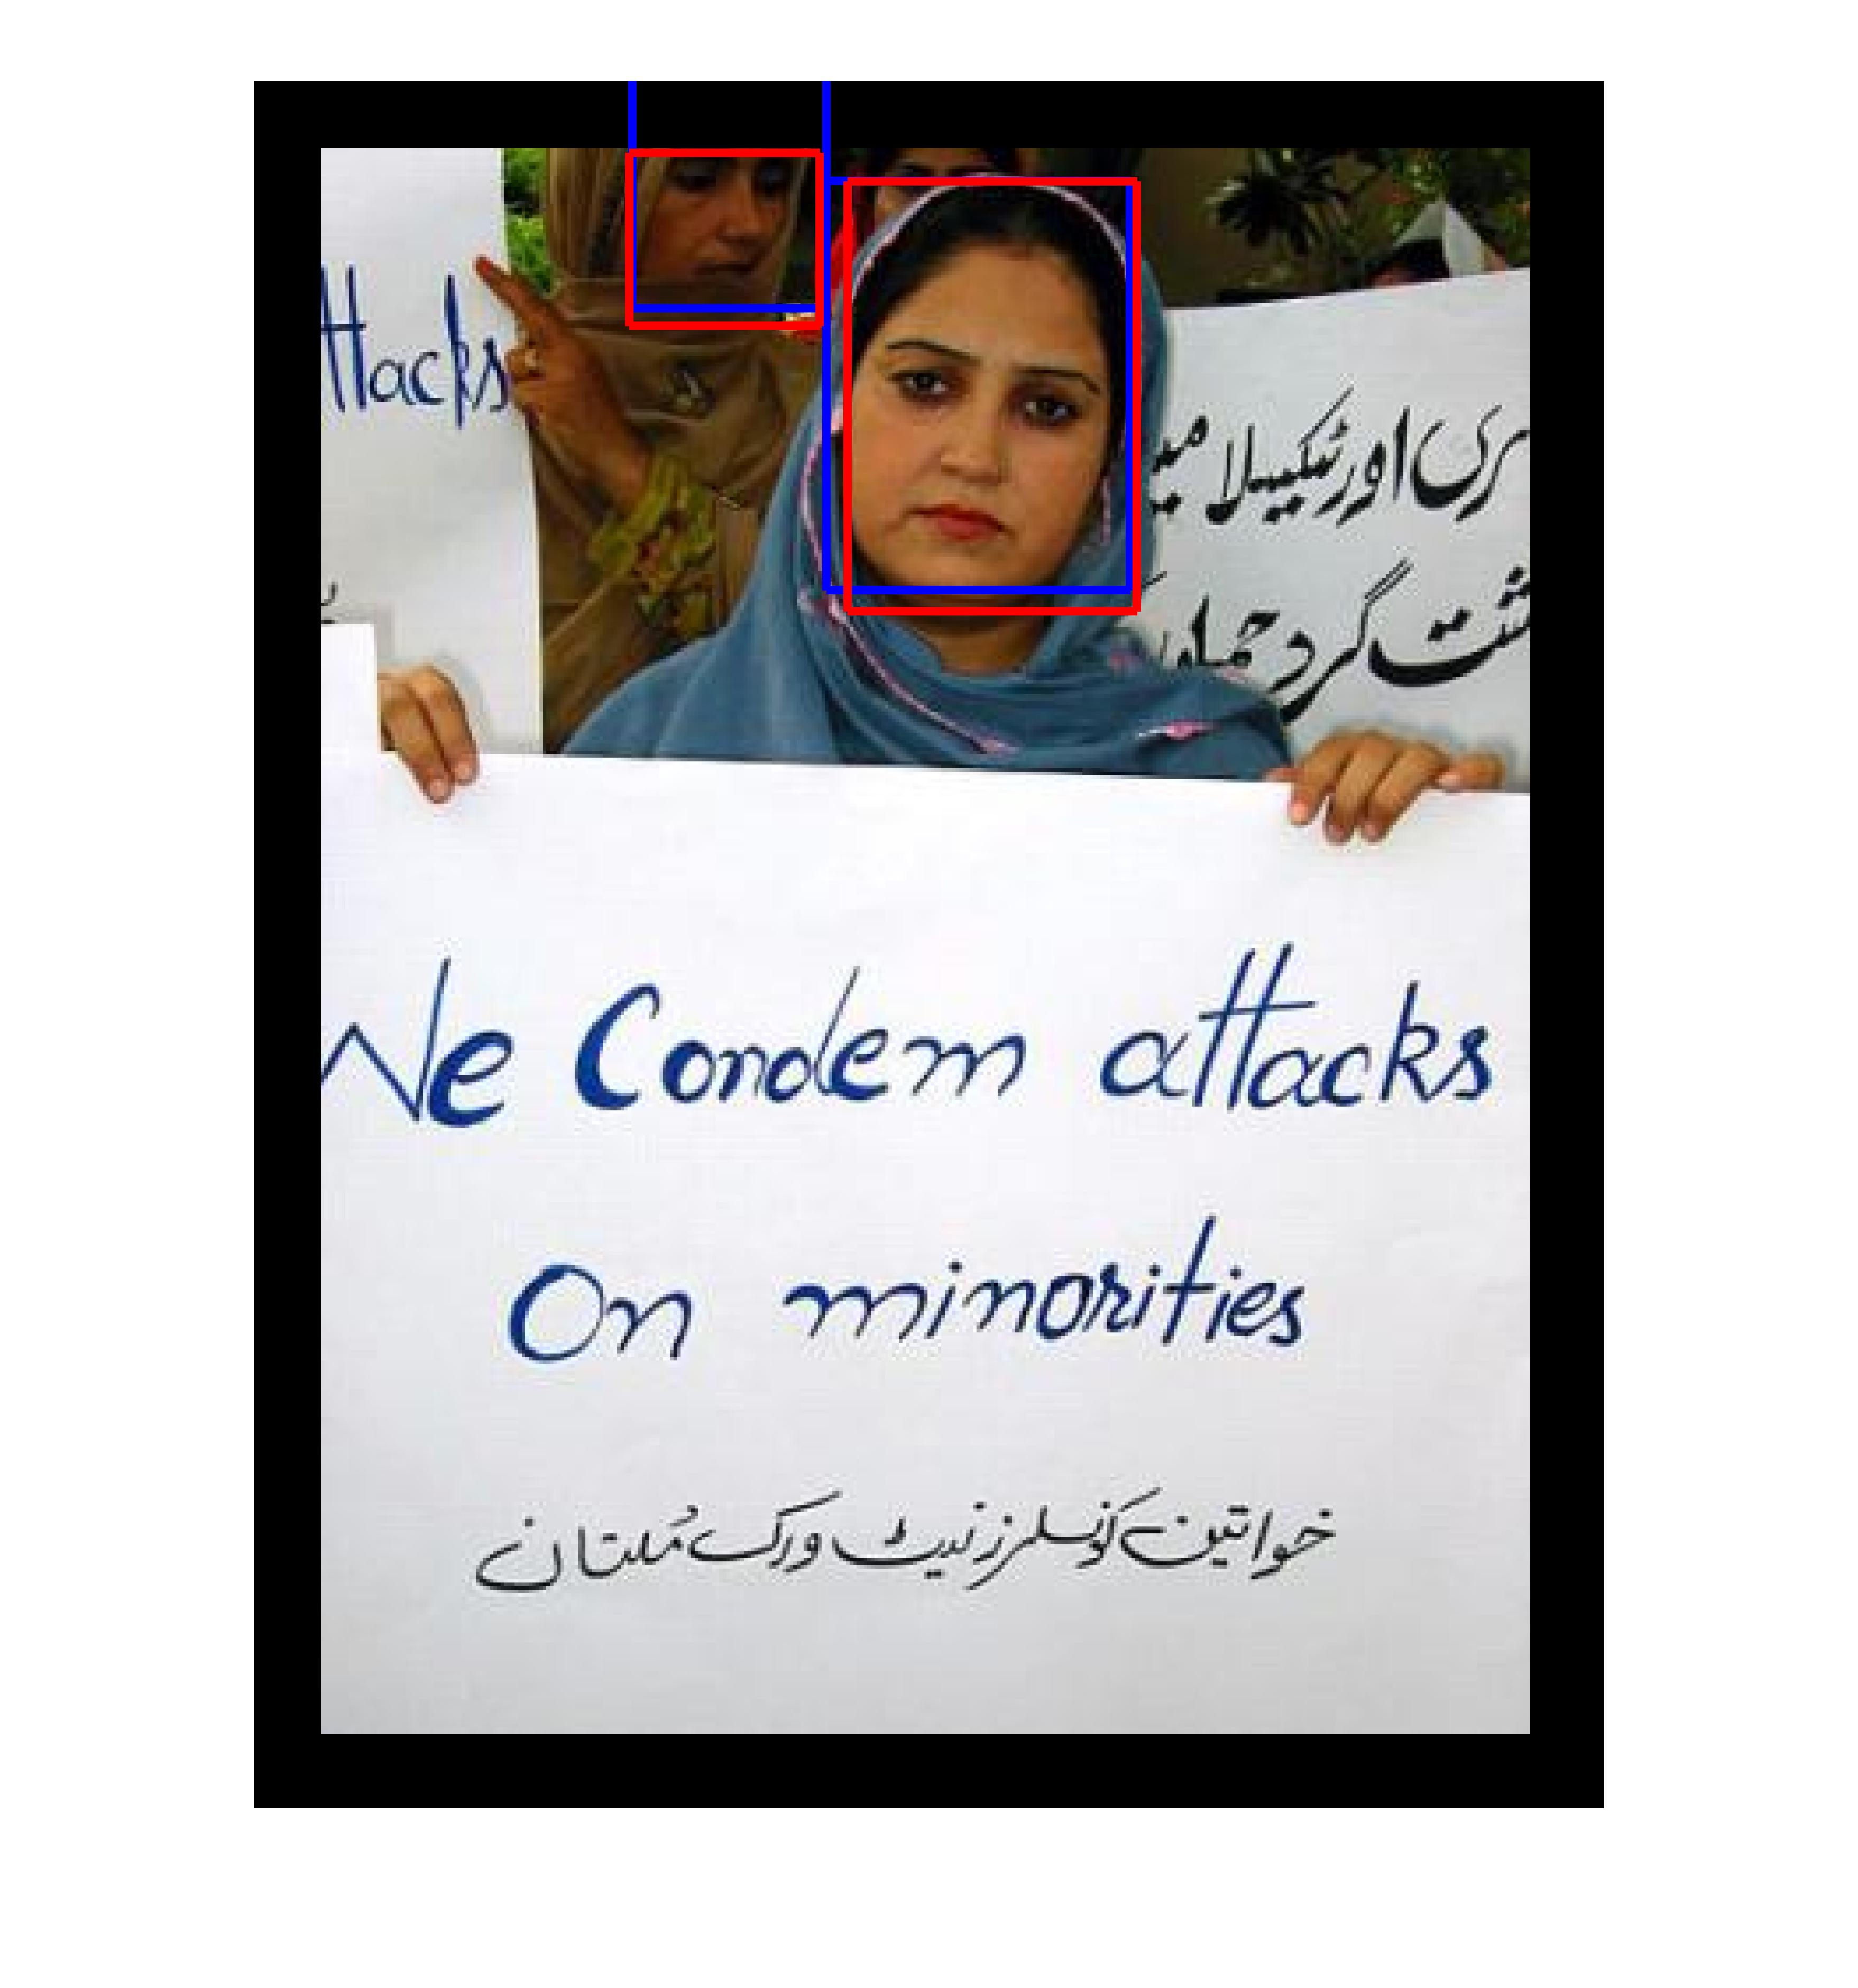 ttacks
ری اور ٹیکسلا می
شت گرد حملوں
We Condem attacks
On minorities
خواتین کونسلرز نیٹ ورک مُلتان